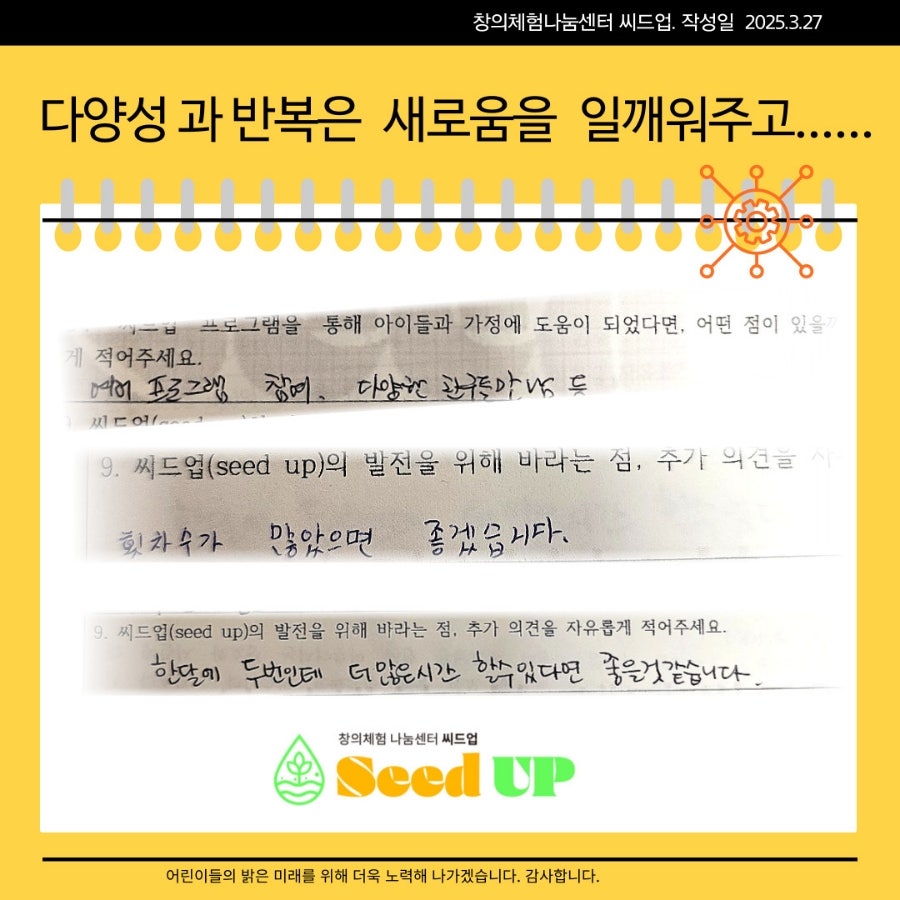 창의체험나눔센터 씨드업. 작성일 2025.3.27
다양성 과 반복은 새로움을 일깨워주고......
씨드업 프로그램을 통해 아이들과 가정에 도움이 되었다면, 어떤 점이 있을까
게 적어주세요.
여러 프로그램 참여. 다양한 친구들과 만남 등
9. 씨드업(seed
9. 씨드업(seed up)의 발전을 위해 바라는 점, 추가 의견을 자
횟차수가 많았으면 좋겠습니다.
9. 씨드업(seed up)의 발전을 위해 바라는 점, 추가 의견을 자유롭게 적어주세요.
한달에 두번인데 더많은시간 할수있다면 좋을것같습니다.
창의체험 나눔센터 씨드업
Seed UP
어린이들의 밝은 미래를 위해 더욱 노력해 나가겠습니다. 감사합니다.